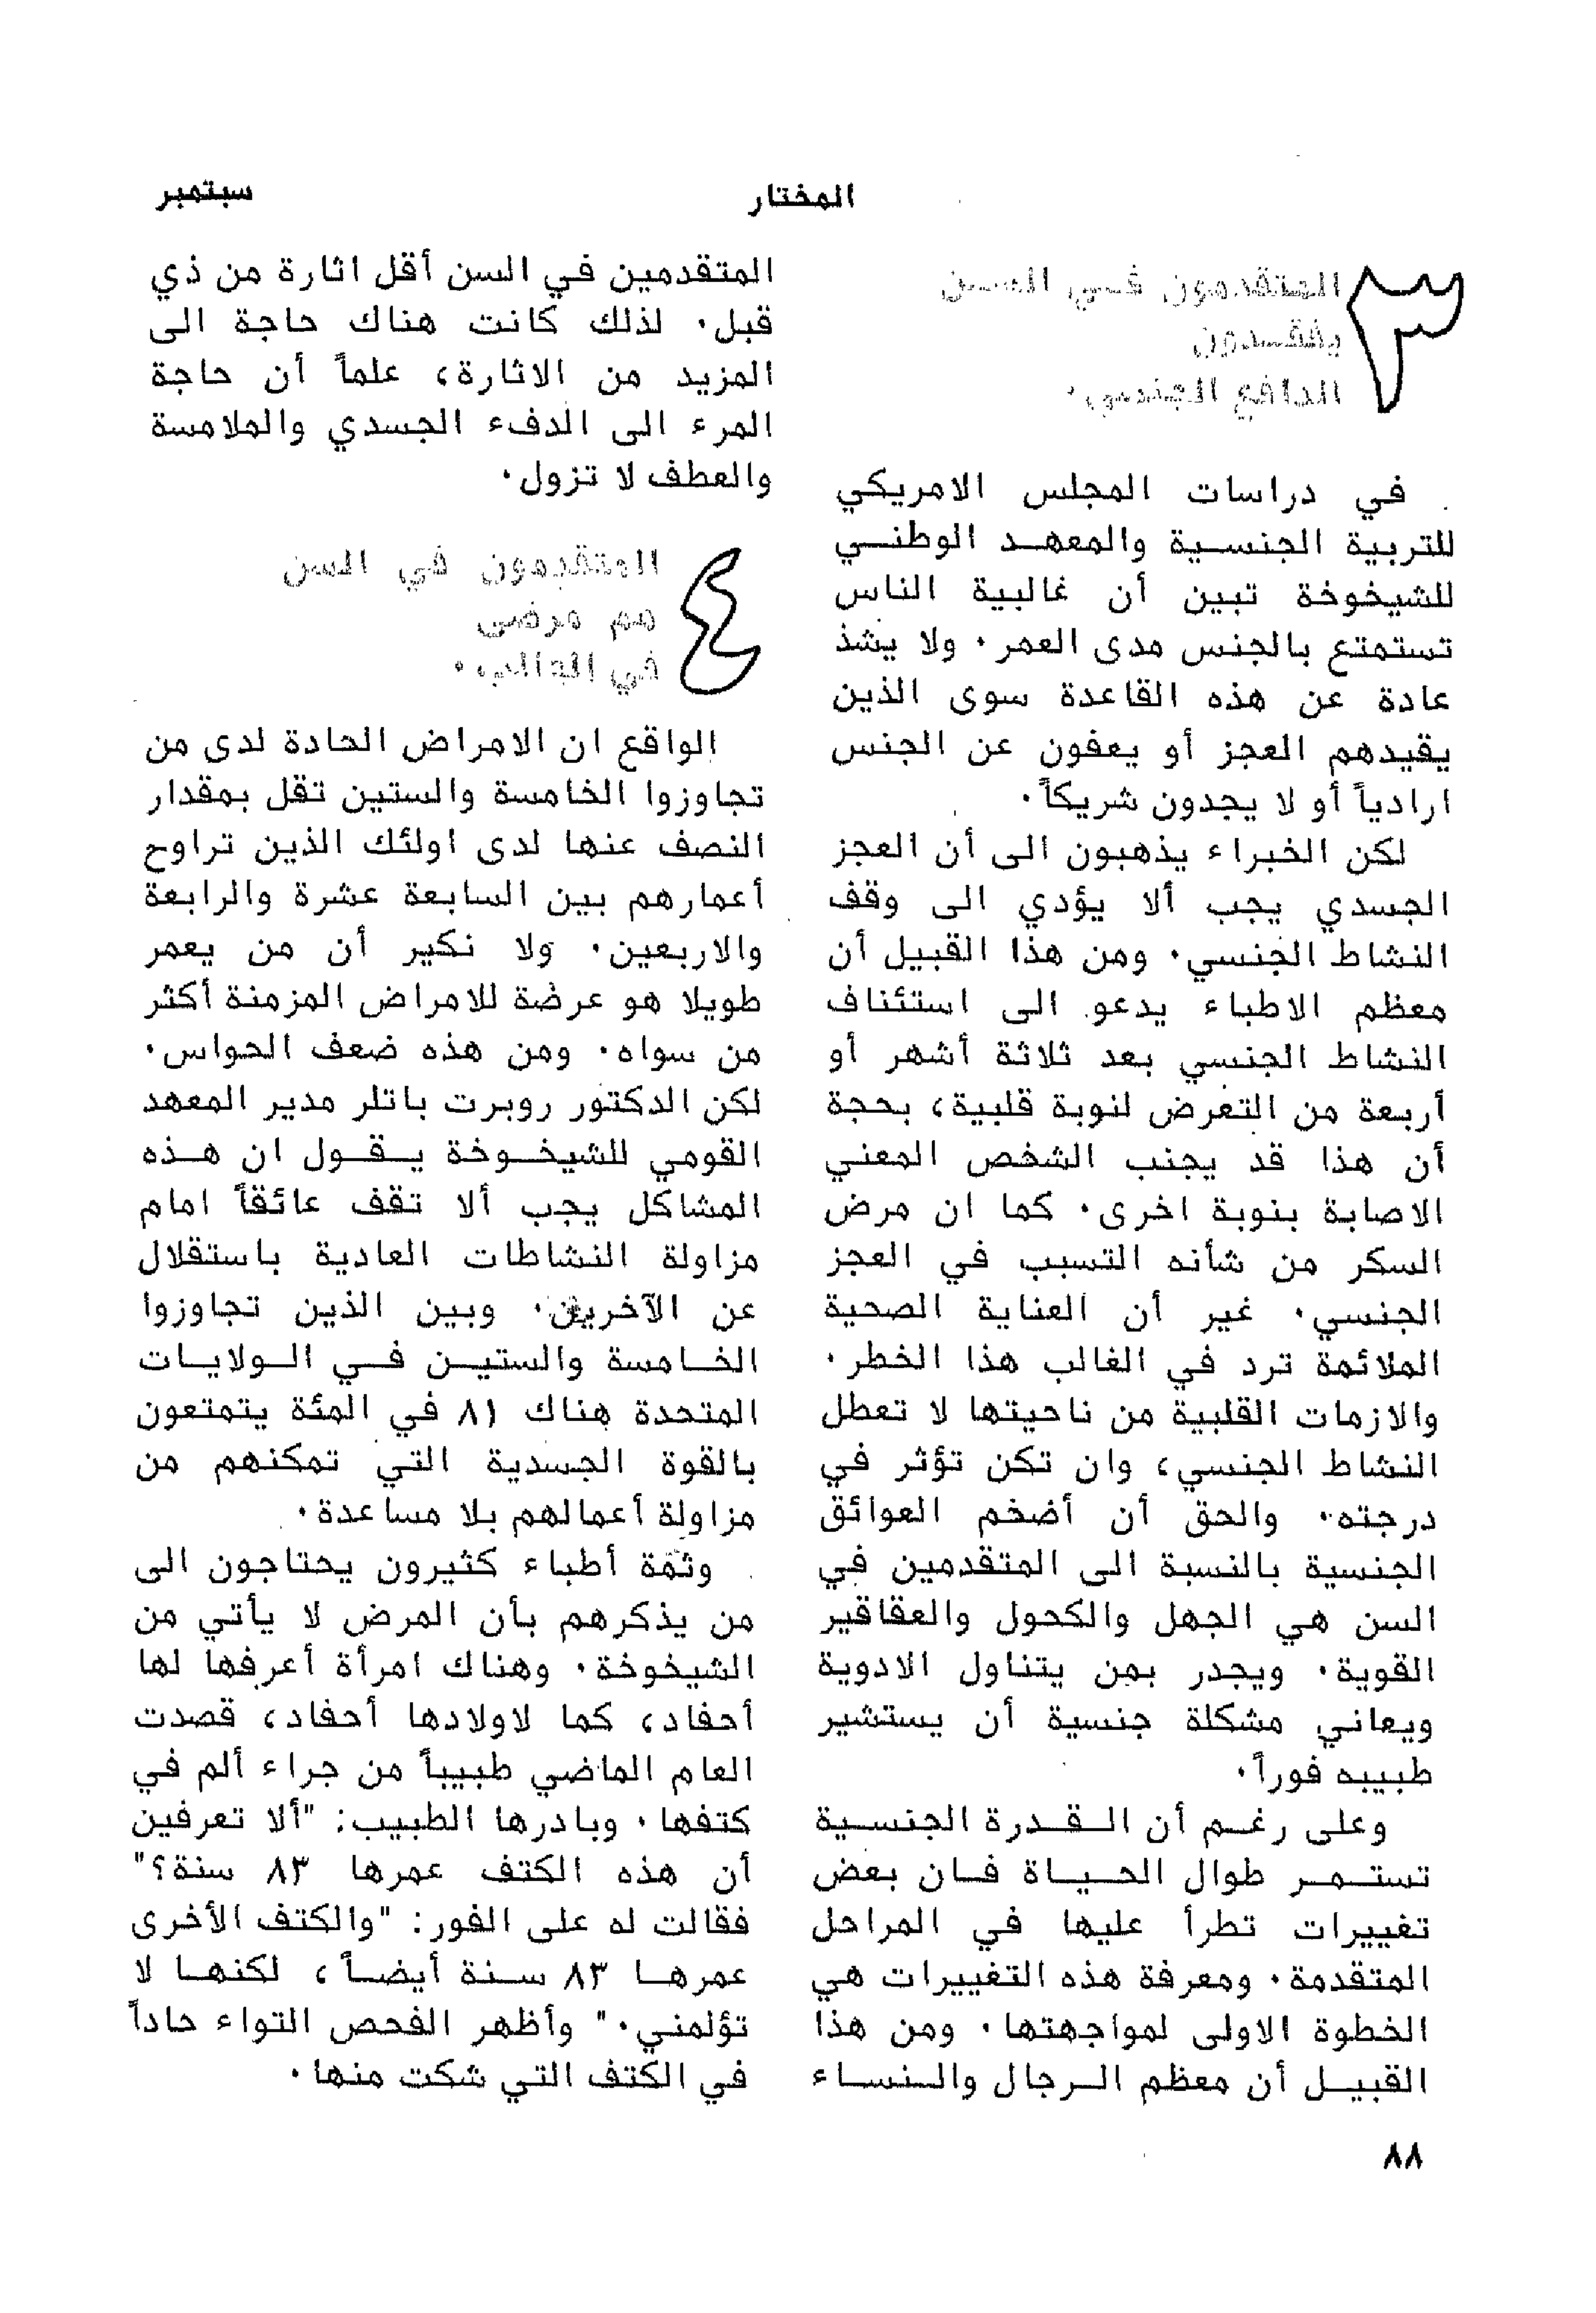 المختار
سبتمبر
٣
المتقدمون فـي السـن
يفقـدون
الدافع الجنسي.
في دراسات المجلس الامريكي
للتربية الجنسـية والمعهـد الوطنـي
للشيخوخة تبين أن غالبية الناس
تستمتع بالجنس مدى العمر. ولا يشذ
عادة عن هذه القاعدة سوى الذين
يقيدهم العجز أو يعفون عن الجنس
ارادياً أو لا يجدون شريكاً.
لكن الخبراء يذهبون الى أن العجز
الجسدي يجب ألا يؤدي الى وقف
النشاط الجنسي. ومن هذا القبيل أن
معظم الاطباء يدعو الى استئناف
النشاط الجنسي بعد ثلاثة أشهر أو
أربعة من التعرض لنوبة قلبية، بحجة
أن هذا قد يجنب الشخص المعني
الاصابة بنوبة اخرى. كما ان مرض
السكر من شأنه التسبب في العجز
الجنسي. غير أن العناية الصحية
الملائمة ترد في الغالب هذا الخطر.
والازمات القلبية من ناحيتها لا تعطل
النشاط الجنسي، وان تكن تؤثر في
درجته. والحق أن أضخم العوائق
الجنسية بالنسبة الى المتقدمين في
السن هي الجهل والكحول والعقاقير
القوية. ويجدر بمن يتناول الادوية
ويعاني مشكلة جنسية أن يستشير
طبيبه فوراً.
وعلى رغـم أن الـقـدرة الجنسـية
تستـمـر طوال الحـيـاة فـان بعض
تغييرات تطرأ عليها في المراحل
المتقدمة. ومعرفة هذه التغييرات هي
الخطوة الاولى لمواجهتها. ومن هذا
القبيـل أن معظم الـرجال والـنسـاء
المتقدمين في السن أقل اثارة من ذي
قبل. لذلك كانت هناك حاجة الى
المزيد من الاثارة، علماً أن حاجة
المرء الى الدفء الجسدي والملامسة
والعطف لا تزول.
٤
المتقدمون في السن
هم مرضى
في الغالب.
الواقع ان الامراض الحادة لدى من
تجاوزوا الخامسة والستين تقل بمقدار
النصف عنها لدى اولئك الذين تراوح
أعمارهم بين السابعة عشرة والرابعة
والاربعين. ولا نكير أن من يعمر
طويلا هو عرضة للامراض المزمنة أكثر
من سواه. ومن هذه ضعف الحواس.
لكن الدكتور روبرت باتلر مدير المعهد
القومي للشيخـوخة يـقـول ان هـذه
المشاكل يجب ألا تقف عائقاً امام
مزاولة النشاطات العادية باستقلال
عن الآخرين. وبين الذين تجاوزوا
الخـامسة والستيـن فـي الـولايـات
المتحدة هناك ٨١ في المئة يتمتعون
بالقوة الجسدية التي تمكنهم من
مزاولة أعمالهم بلا مساعدة.
وثمة أطباء كثيرون يحتاجون الى
من يذكرهم بأن المرض لا يأتي من
الشيخوخة. وهناك امرأة أعرفها لها
أحفاد، كما لاولادها أحفاد، قصدت
العام الماضي طبيباً من جراء ألم في
كتفها. وبادرها الطبيب: "ألا تعرفين
أن هذه الكتف عمرها ٨٣ سنة؟"
فقالت له على الفور: "والكتف الأخرى
عمرهـا ٨٣ سـنة أيضـاً، لكنهـا لا
تؤلمني." وأظهر الفحص التواء حاداً
في الكتف التي شكت منها.
٨٨